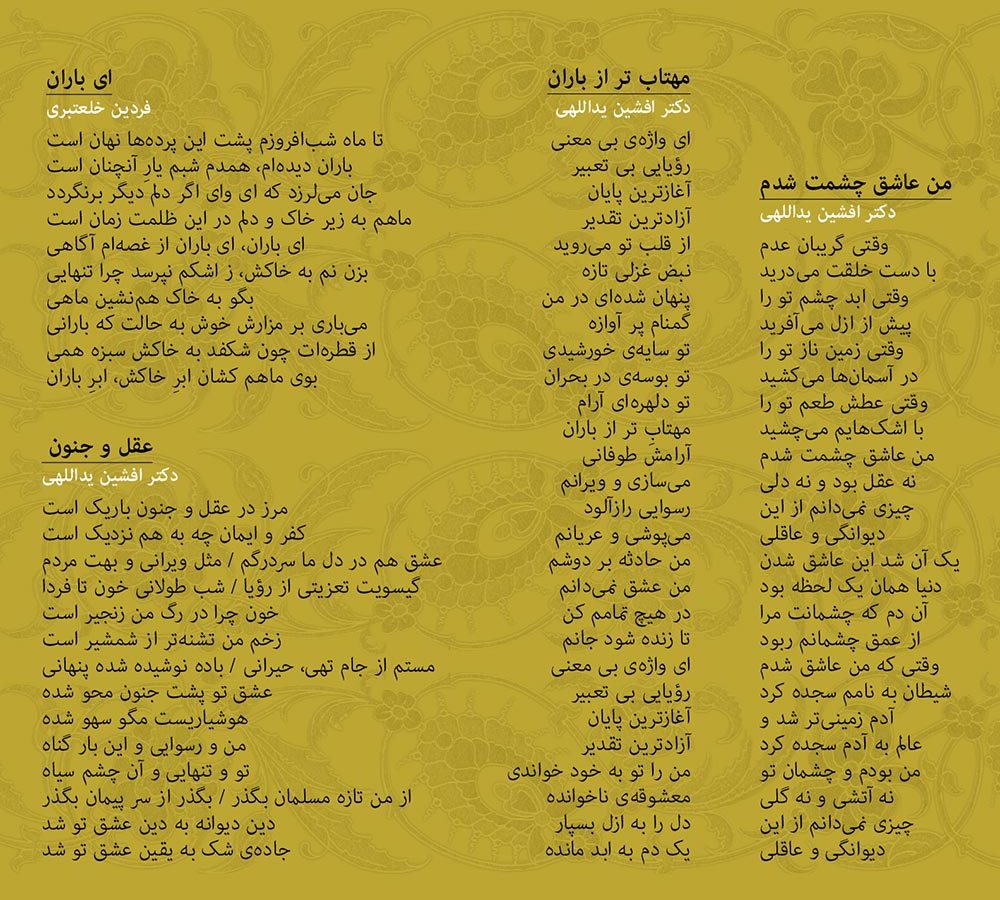 من عاشق چشمت شدم
دکتر افشین یداللهی
وقتی گریبان عدم
با دست خلقت می‌درید
وقتی ابد چشم تو را
پیش از ازل می‌آفرید
وقتی زمین ناز تو را
در آسمان‌ها می‌کشید
وقتی عطش طعم تو را
با اشک‌هایم می‌چشید
من عاشق چشمت شدم
نه عقل بود و نه دلی
چیزی نمی‌دانم از این
دیوانگی و عاقلی
یک آن شد این عاشق شدن
دنیا همان یک لحظه بود
آن دم که چشمانت مرا
از عمق چشمانم ربود
وقتی که من عاشق شدم
شیطان به نامم سجده کرد
آدم زمینی‌تر شد و
عالم به آدم سجده کرد
من بودم و چشمان تو
نه آتشی و نه گلی
چیزی نمی‌دانم از این
دیوانگی و عاقلی
مهتاب تر از باران
دکتر افشین یداللهی
ای واژه‌ی بی معنی
رؤیایی بی تعبیر
آغازترین پایان
آزادترین تقدیر
از قلب تو می‌روید
نبض غزلی تازه
پنهان شده‌ای در من
گمنام پر آوازه
تو سایه‌ی خورشیدی
تو بوسه‌ی در بحران
تو دلهره‌ای آرام
مهتابِ تر از باران
آرامش طوفانی
می‌سازی و ویرانم
رسوایی رازآلود
می‌پوشی و عریانم
من حادثه بر دوشم
من عشق نمی‌دانم
در هیچ تمامم کن
تا زنده شود جانم
ای واژه‌ی بی معنی
رؤیایی بی تعبیر
آغازترین پایان
آزادترین تقدیر
من را تو به خود خواندی
معشوقه‌ی ناخوانده
دل را به ازل بسپار
یک دم به ابد مانده
ای باران
فردین خلعتبری
تا ماه شب‌افروزم پشت این پرده‌ها نهان است
باران دیده‌ام، همدم شبم یارِ آنچنان است
جان می‌لرزد که ای وای اگر دلم دیگر برنگردد
ماهم به زیر خاک و دلم در این ظلمت زمان است
ای باران، ای باران از غصه‌ام آگاهی
بزن نم به خاکش، ز اشکم نپرسد چرا تنهایی
بگو به خاک هم‌نشین ماهی
می‌باری بر مزارش خوش به حالت که بارانی
از قطره‌ات چون شکفد به خاکش سبزه همی
بوی ماهم کشان ابرِ خاکش، ابرِ باران
عقل و جنون
دکتر افشین یداللهی
مرز در عقل و جنون باریک است
کفر و ایمان چه به هم نزدیک است
عشق هم در دل ما سردرگم / مثل ویرانی و بهت مردم
گیسویت تعزیتی از رؤیا / شب طولانی خون تا فردا
خون چرا در رگ من زنجیر است
زخم من تشنه‌تر از شمشیر است
مستم از جام تهی، حیرانی / باده نوشیده شده پنهانی
عشق تو پشت جنون محو شده
هوشیاریست مگو سهو شده
من و رسوایی و این بار گناه
تو و تنهایی و آن چشم سیاه
از من تازه مسلمان بگذر / بگذر از سر پیمان بگذر
دین دیوانه به دین عشق تو شد
جاده‌ی شک به یقین عشق تو شد